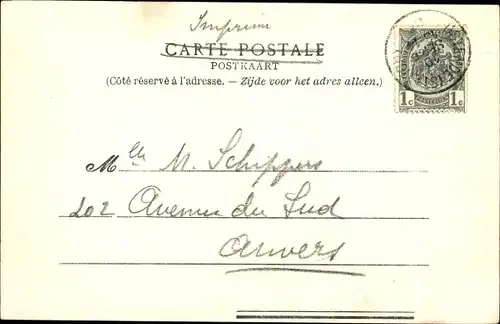 Imprimé
CARTE POSTALE
POSTKAART
(Côté réservé à l'adresse. — Zijde voor het adres alleen.)
1c 1c
Mlle M. Schippers
202 Avenue du Sud
Anvers